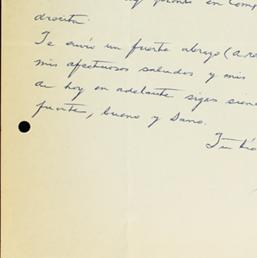 pronto en comp
drocita.
Te envío un fuerte abrazo (a re
mis afectuosos saludos y mis
de hoy en adelante sigas sien
fuerte, bueno y sano.
Tu tío